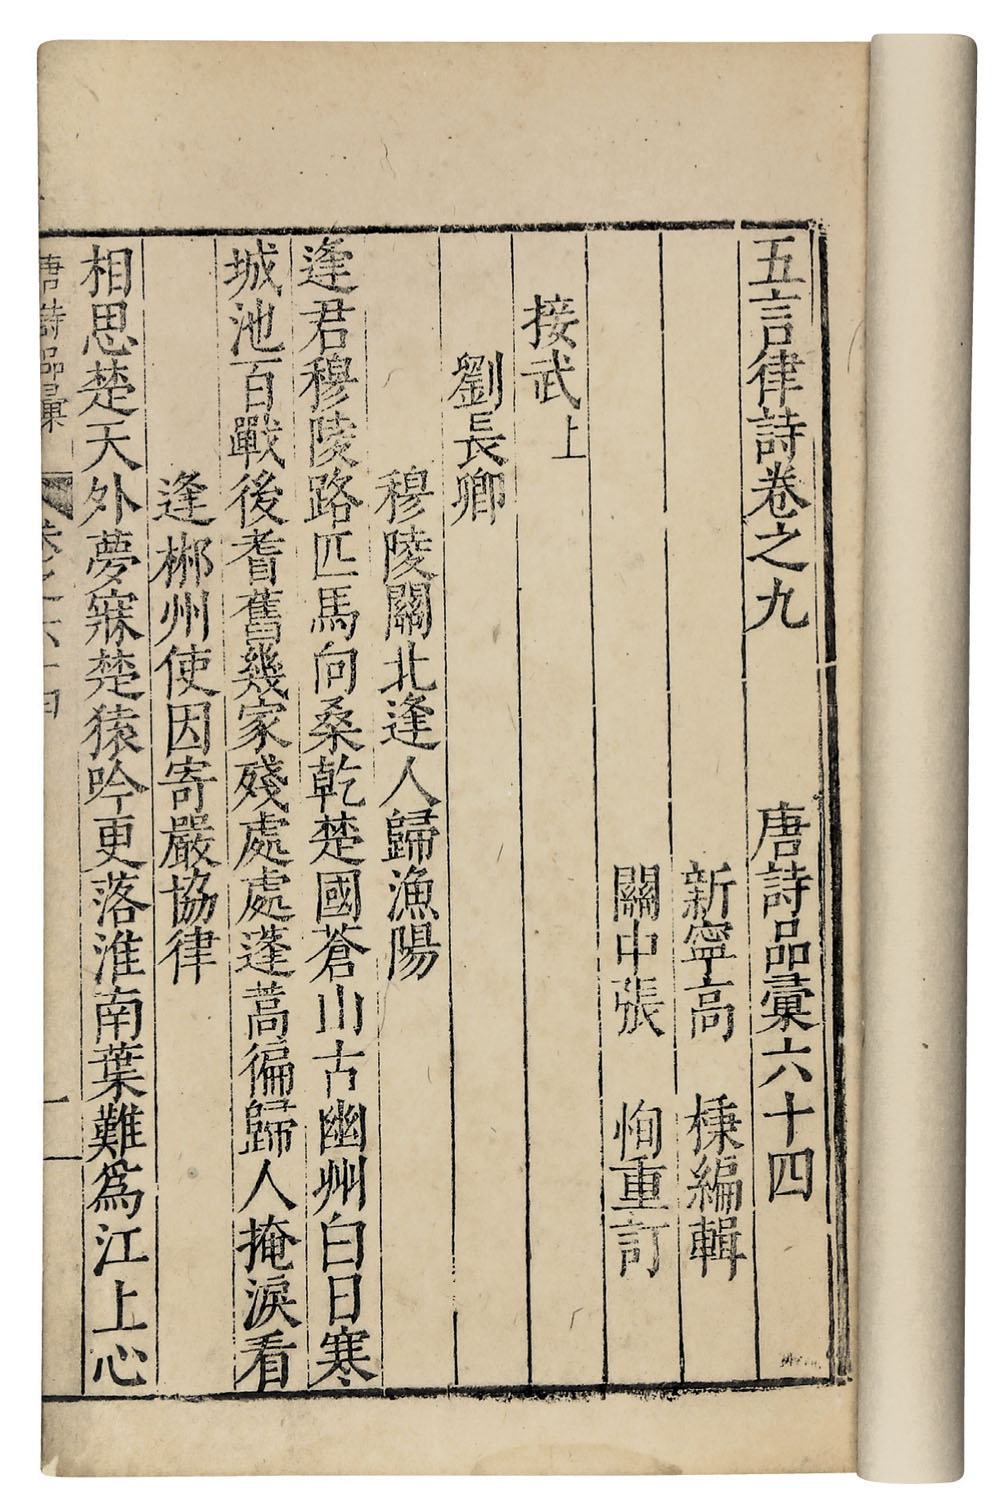 五言律詩卷之九　唐詩品彙六十四
新寧高　棅編輯
關中張　恂重訂
接武上
劉長卿
穆陵關北逢人歸漁陽
逢君穆陵路匹馬向桑乾楚國蒼山古幽州白日寒
城池百戰後耆舊幾家殘處處蓬蒿徧歸人掩淚看
逢郴州使因寄嚴協律
相思楚天外夢寐楚猿吟更落淮南葉難爲江上心
唐詩品彙　卷之六十四　一